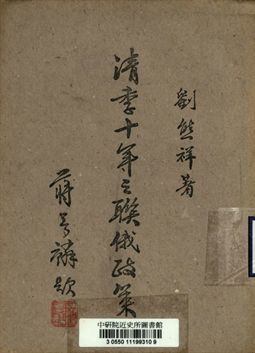 劉熊祥著
清季十年之聯俄政策
蔣夢麟題
中研院近史所圖書館
3 0550 11199310 9